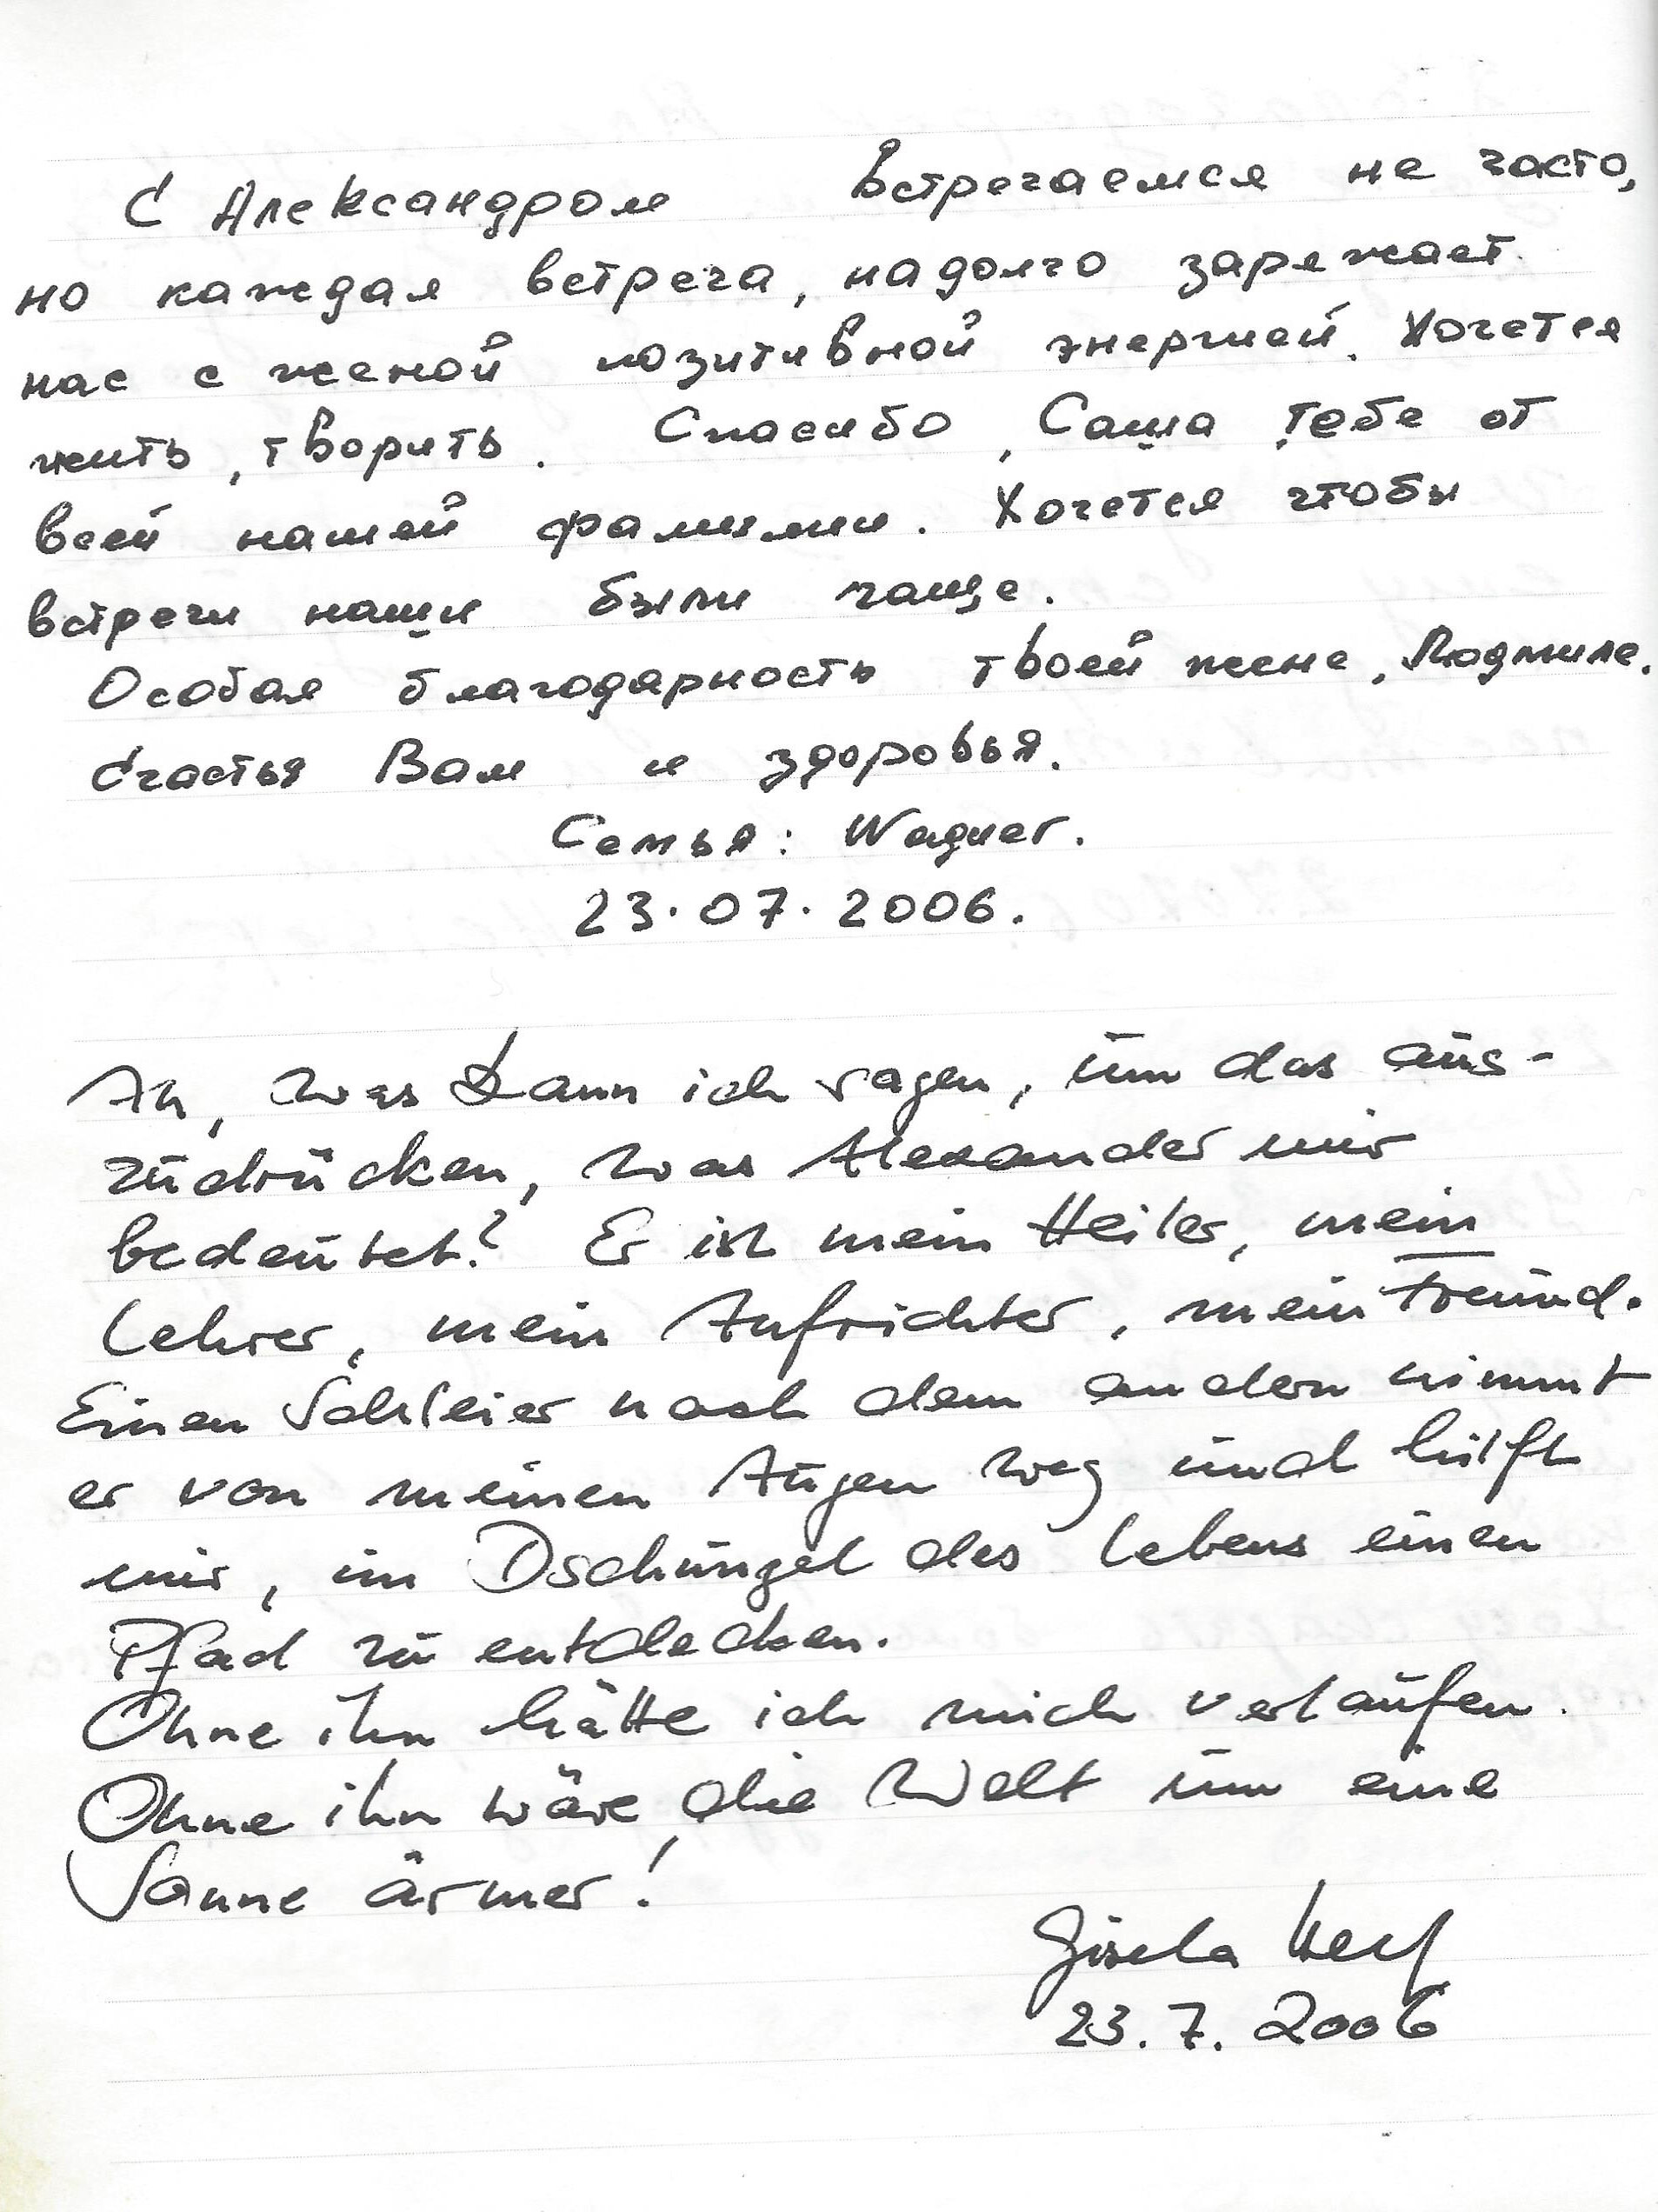 С Александром встречаемся не часто,
но каждая встреча, надолго заряжает
нас с женой позитивной энергией. Хочется
жить, творить. Спасибо, Саша тебе от
всей нашей фамилии. Хочется чтобы
встречи наши были чаще.
Особая благодарность твоей жене, Людмиле.
Счастья Вам и здоровья.
Семья: Wagner.
23.07.2006.
Ah, was kann ich sagen, um das aus-
zudrücken, was Alexander mir
bedeutet? Er ist mein Heiler, mein
Lehrer, mein Aufrichter, mein Freund.
Einen Schleier nach dem andern nimmt
er von meinen Augen weg und hilft
mir, im Dschungel des Lebens einen
Pfad zu entdecken.
Ohne ihn hätte ich mich verlaufen.
Ohne ihn wäre die Welt um eine
Sonne ärmer!
Gisela
23.7.2006